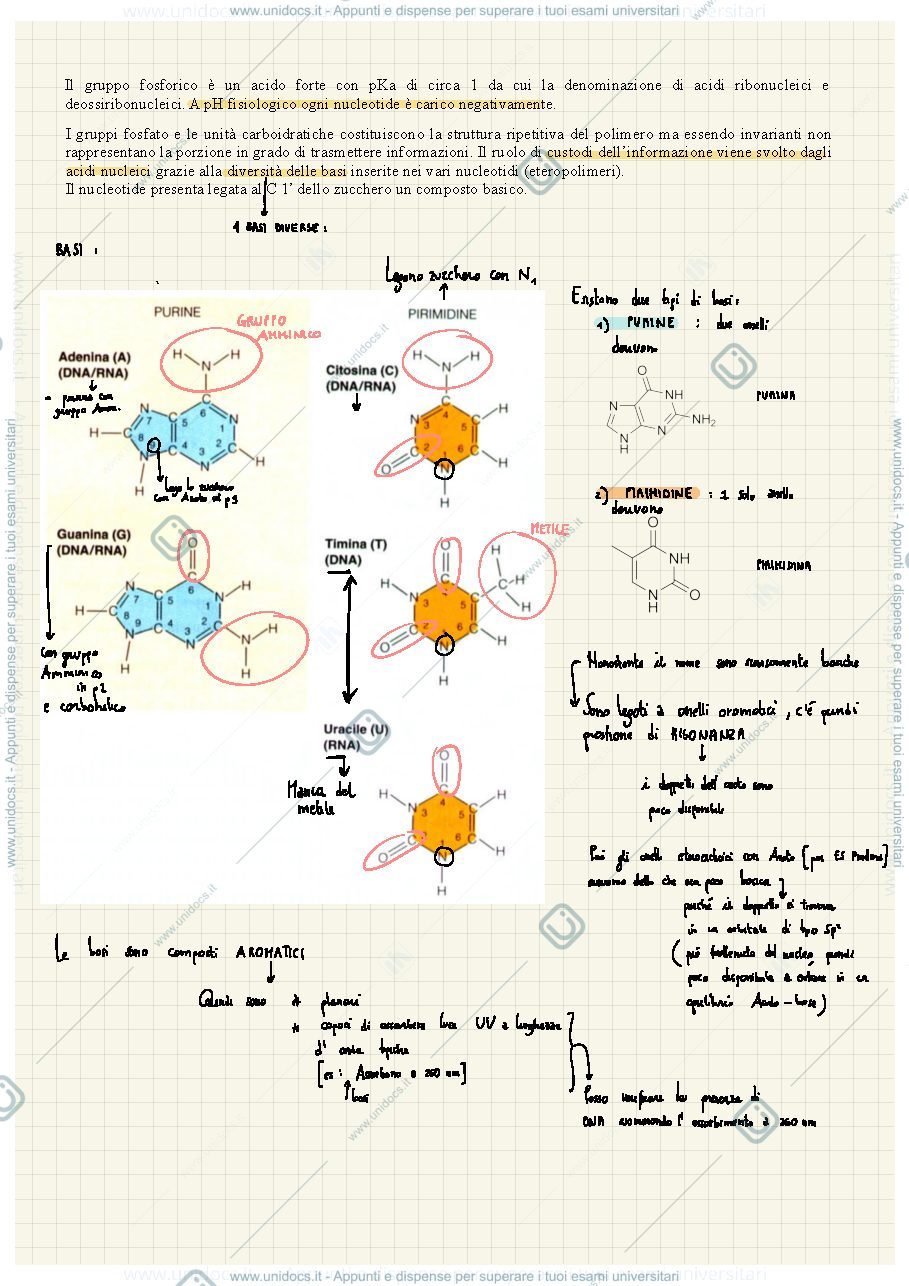 www.unidocs.it - Appunti e dispense per superare i tuoi esami universitari
Il gruppo fosforico è un acido forte con pKa di circa 1 da cui la denominazione di acidi ribonucleici e
deossiribonucleici. A pH fisiologico ogni nucleotide è carico negativamente.
I gruppi fosfato e le unità carboidratiche costituiscono la struttura ripetitiva del polimero ma essendo invarianti non
rappresentano la porzione in grado di trasmettere informazioni. Il ruolo di custodi dell'informazione viene svolto dagli
acidi nucleici grazie alla diversità delle basi inserite nei vari nucleotidi (eteropolimeri).
Il nucleotide presenta legata al C 1' dello zucchero un composto basico.
4 BASI DIVERSE :
BASI :
Legano zucchero con N1
PURINE
GRUPPO
AMMINICO
Adenina (A)
(DNA/RNA)
PIRIMIDINE
Citosina (C)
(DNA/RNA)
Guanina (G)
(DNA/RNA)
con gruppo
Amminico
in p2
e carbonilico
Timina (T)
(DNA)
METILE
Uracile (U)
(RNA)
Manca del
metile
Esistono due tipi di basi:
1) PURINE : due anelli
derivano
PURINA
2) PIRIMIDINE : 1 solo anello
derivano
PIRIMIDINA
Nonostante il nome sono scarsamente basiche
Sono legati a anelli aromatici, c'è quindi
posizione di RISONANZA
i doppietti dell'azoto sono
poco disponibili
perché il doppietto si trova
in un orbitale di tipo sp2
poco disponibile a entrare in un
equilibrio Acido-base)
Le basi sono composti AROMATICI
Quindi sono * planari
* capaci di assorbire luce UV a lunghezze
d'onda tipiche
[es: Assorbono a 260 nm]
basi
Posso verificare la presenza di
DNA esaminando l'assorbimento a 260 nm
www.unidocs.it - Appunti e dispense per superare i tuoi esami universitari